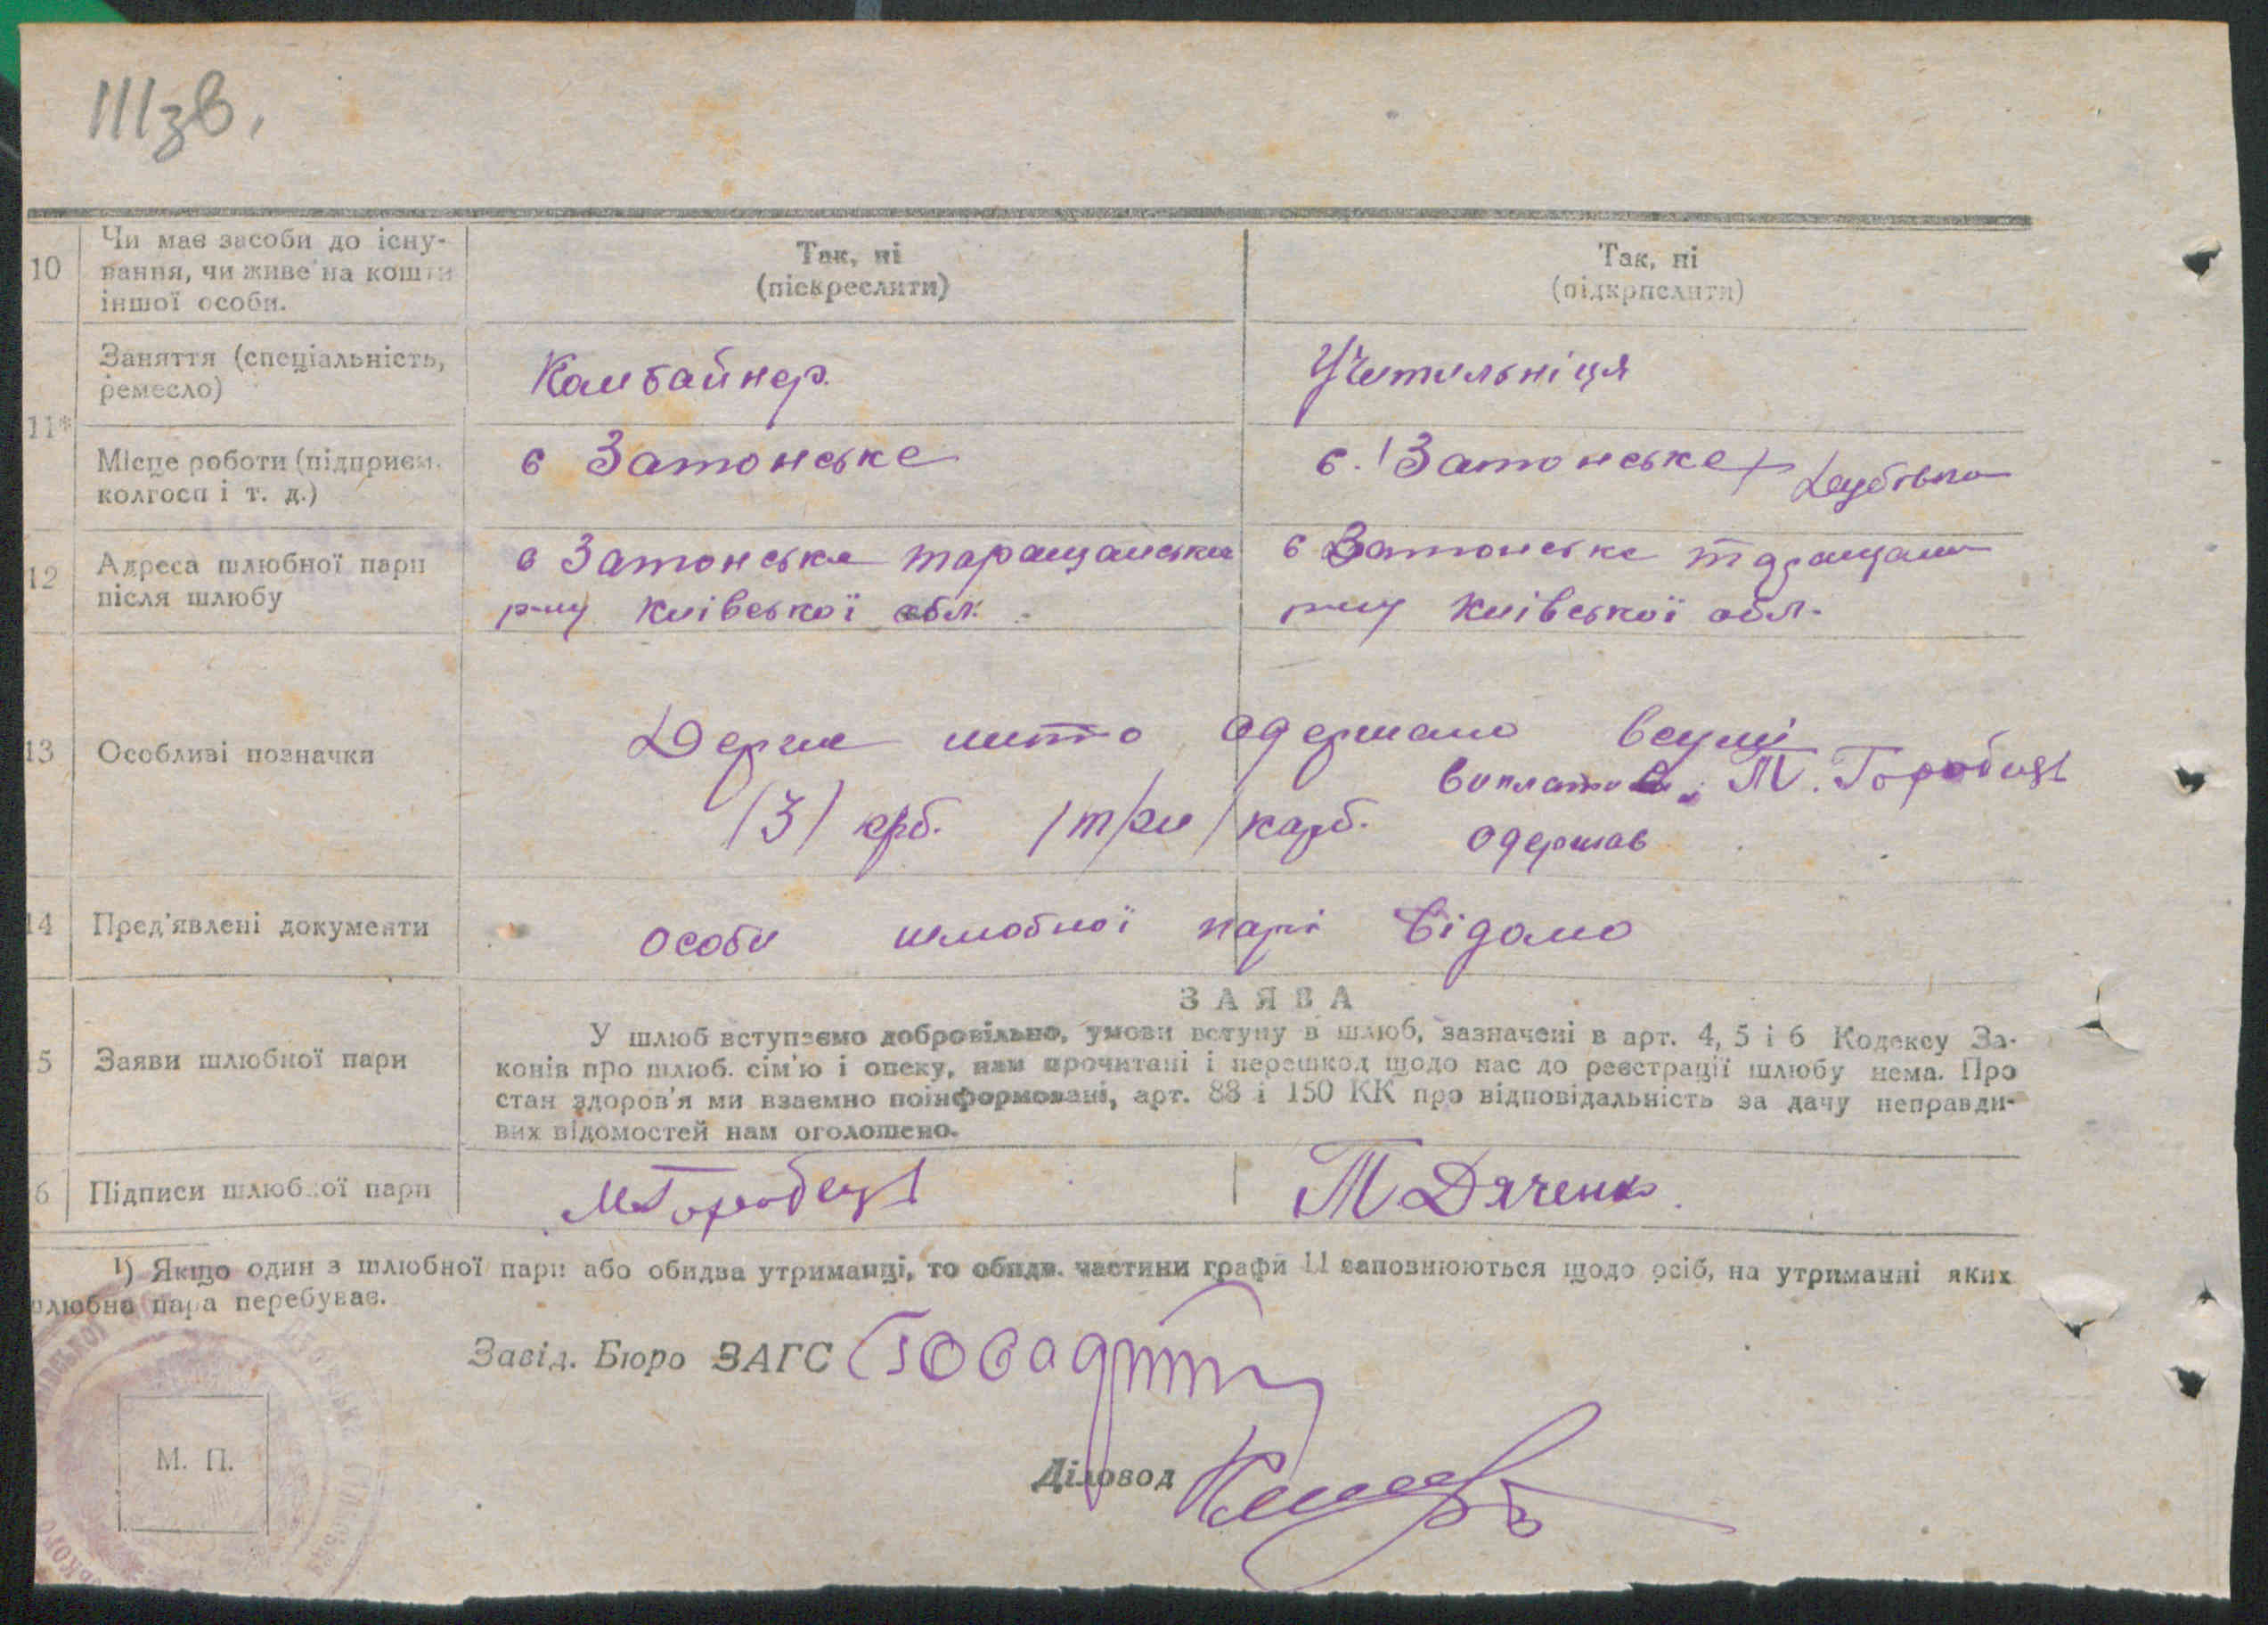 III зв.
10
Чи має засоби до існу-
вання, чи живе на кошти
іншої особи.
Так, ні
(піскреслити)
Так, ні
(підкрпслити)
11*
Заняття (спеціальність,
ремесло)
Комбайнер.
Учительніця
Місце роботи (підприєм.
колгосп і т. д.)
с Затонське
с. Затонське
12
Адреса шлюбної пари
після шлюбу
с Затонське таращанськ
р-ну Киівської обл.
с Затонське таращан
р-ну Киівської обл.
13
Особливі позначки
Держ мито одержано
/3/ крб. /три/ карб.
виплатив М. Горобець
одержав
14
Пред'явлені документи
особи шлюбної парі відомо
5
Заяви шлюбної пари
ЗАЯВА
У шлюб вступаємо добровільно, умови вступу в шлюб, зазначені в арт. 4, 5 і 6 Кодексу За-
конів про шлюб. сім'ю і опеку, нам прочитані і перешкод щодо нас до реєстрації шлюбу нема. Про
стан здоров'я ми взаємно поінформовані, арт. 88 і 150 КК про відповідальність за дачу неправди-
вих відомостей нам оголошено.
6
Підписи шлюбної пари
М Горобець
Т Дяченко.
¹) Якщо один з шлюбної пари або обидва утриманці, то обидв. частини графи 11 заповнюються щодо осіб, на утриманні яких
шлюбна пара перебуває.
Завід. Бюро ЗАГС
Діловод
М. П.